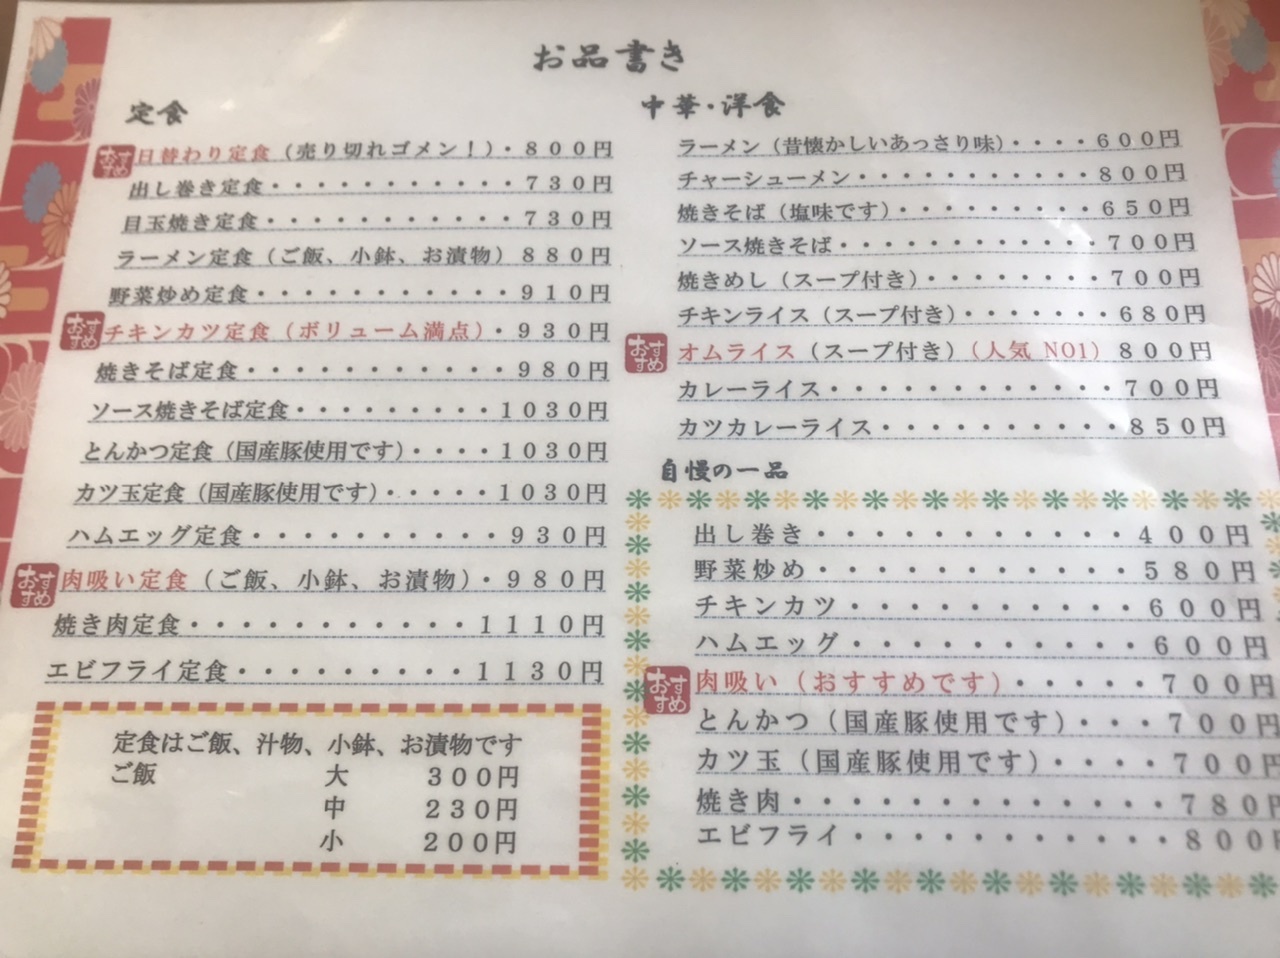 お品書き
定食
おすすめ 日替わり定食（売り切れゴメン！）・８００円
出し巻き定食・・・・・・・・・・・７３０円
目玉焼き定食・・・・・・・・・・・７３０円
ラーメン定食（ご飯、小鉢、お漬物）８８０円
野菜炒め定食・・・・・・・・・・・９１０円
おすすめ チキンカツ定食（ボリューム満点）・９３０円
焼きそば定食・・・・・・・・・・・９８０円
ソース焼きそば定食・・・・・・・・・１０３０円
とんかつ定食（国産豚使用です）・・・・１０３０円
カツ玉定食（国産豚使用です）・・・・・１０３０円
ハムエッグ定食・・・・・・・・・・９３０円
おすすめ 肉吸い定食（ご飯、小鉢、お漬物）・９８０円
焼き肉定食・・・・・・・・・・・１１１０円
エビフライ定食・・・・・・・・・１１３０円
定食はご飯、汁物、小鉢、お漬物です
ご飯 大 ３００円
中 ２３０円
小 ２００円
中華・洋食
ラーメン（昔懐かしいあっさり味）・・・・６００円
チャーシューメン・・・・・・・・・・８００円
焼きそば（塩味です）・・・・・・・・・６５０円
ソース焼きそば・・・・・・・・・・・・７００円
焼きめし（スープ付き）・・・・・・・・７００円
チキンライス（スープ付き）・・・・・・・６８０円
おすすめ オムライス（スープ付き）（人気 NO1）８００円
カレーライス・・・・・・・・・・・・７００円
カツカレーライス・・・・・・・・・・８５０円
自慢の一品
出し巻き・・・・・・・・・・・・４００円
野菜炒め・・・・・・・・・・・・５８０円
チキンカツ・・・・・・・・・・・６００円
ハムエッグ・・・・・・・・・・・６００円
おすすめ 肉吸い（おすすめです）・・・・・７００円
とんかつ（国産豚使用です）・・・７００円
カツ玉（国産豚使用です）・・・・７００円
焼き肉・・・・・・・・・・・・・７８０円
エビフライ・・・・・・・・・・・８００円